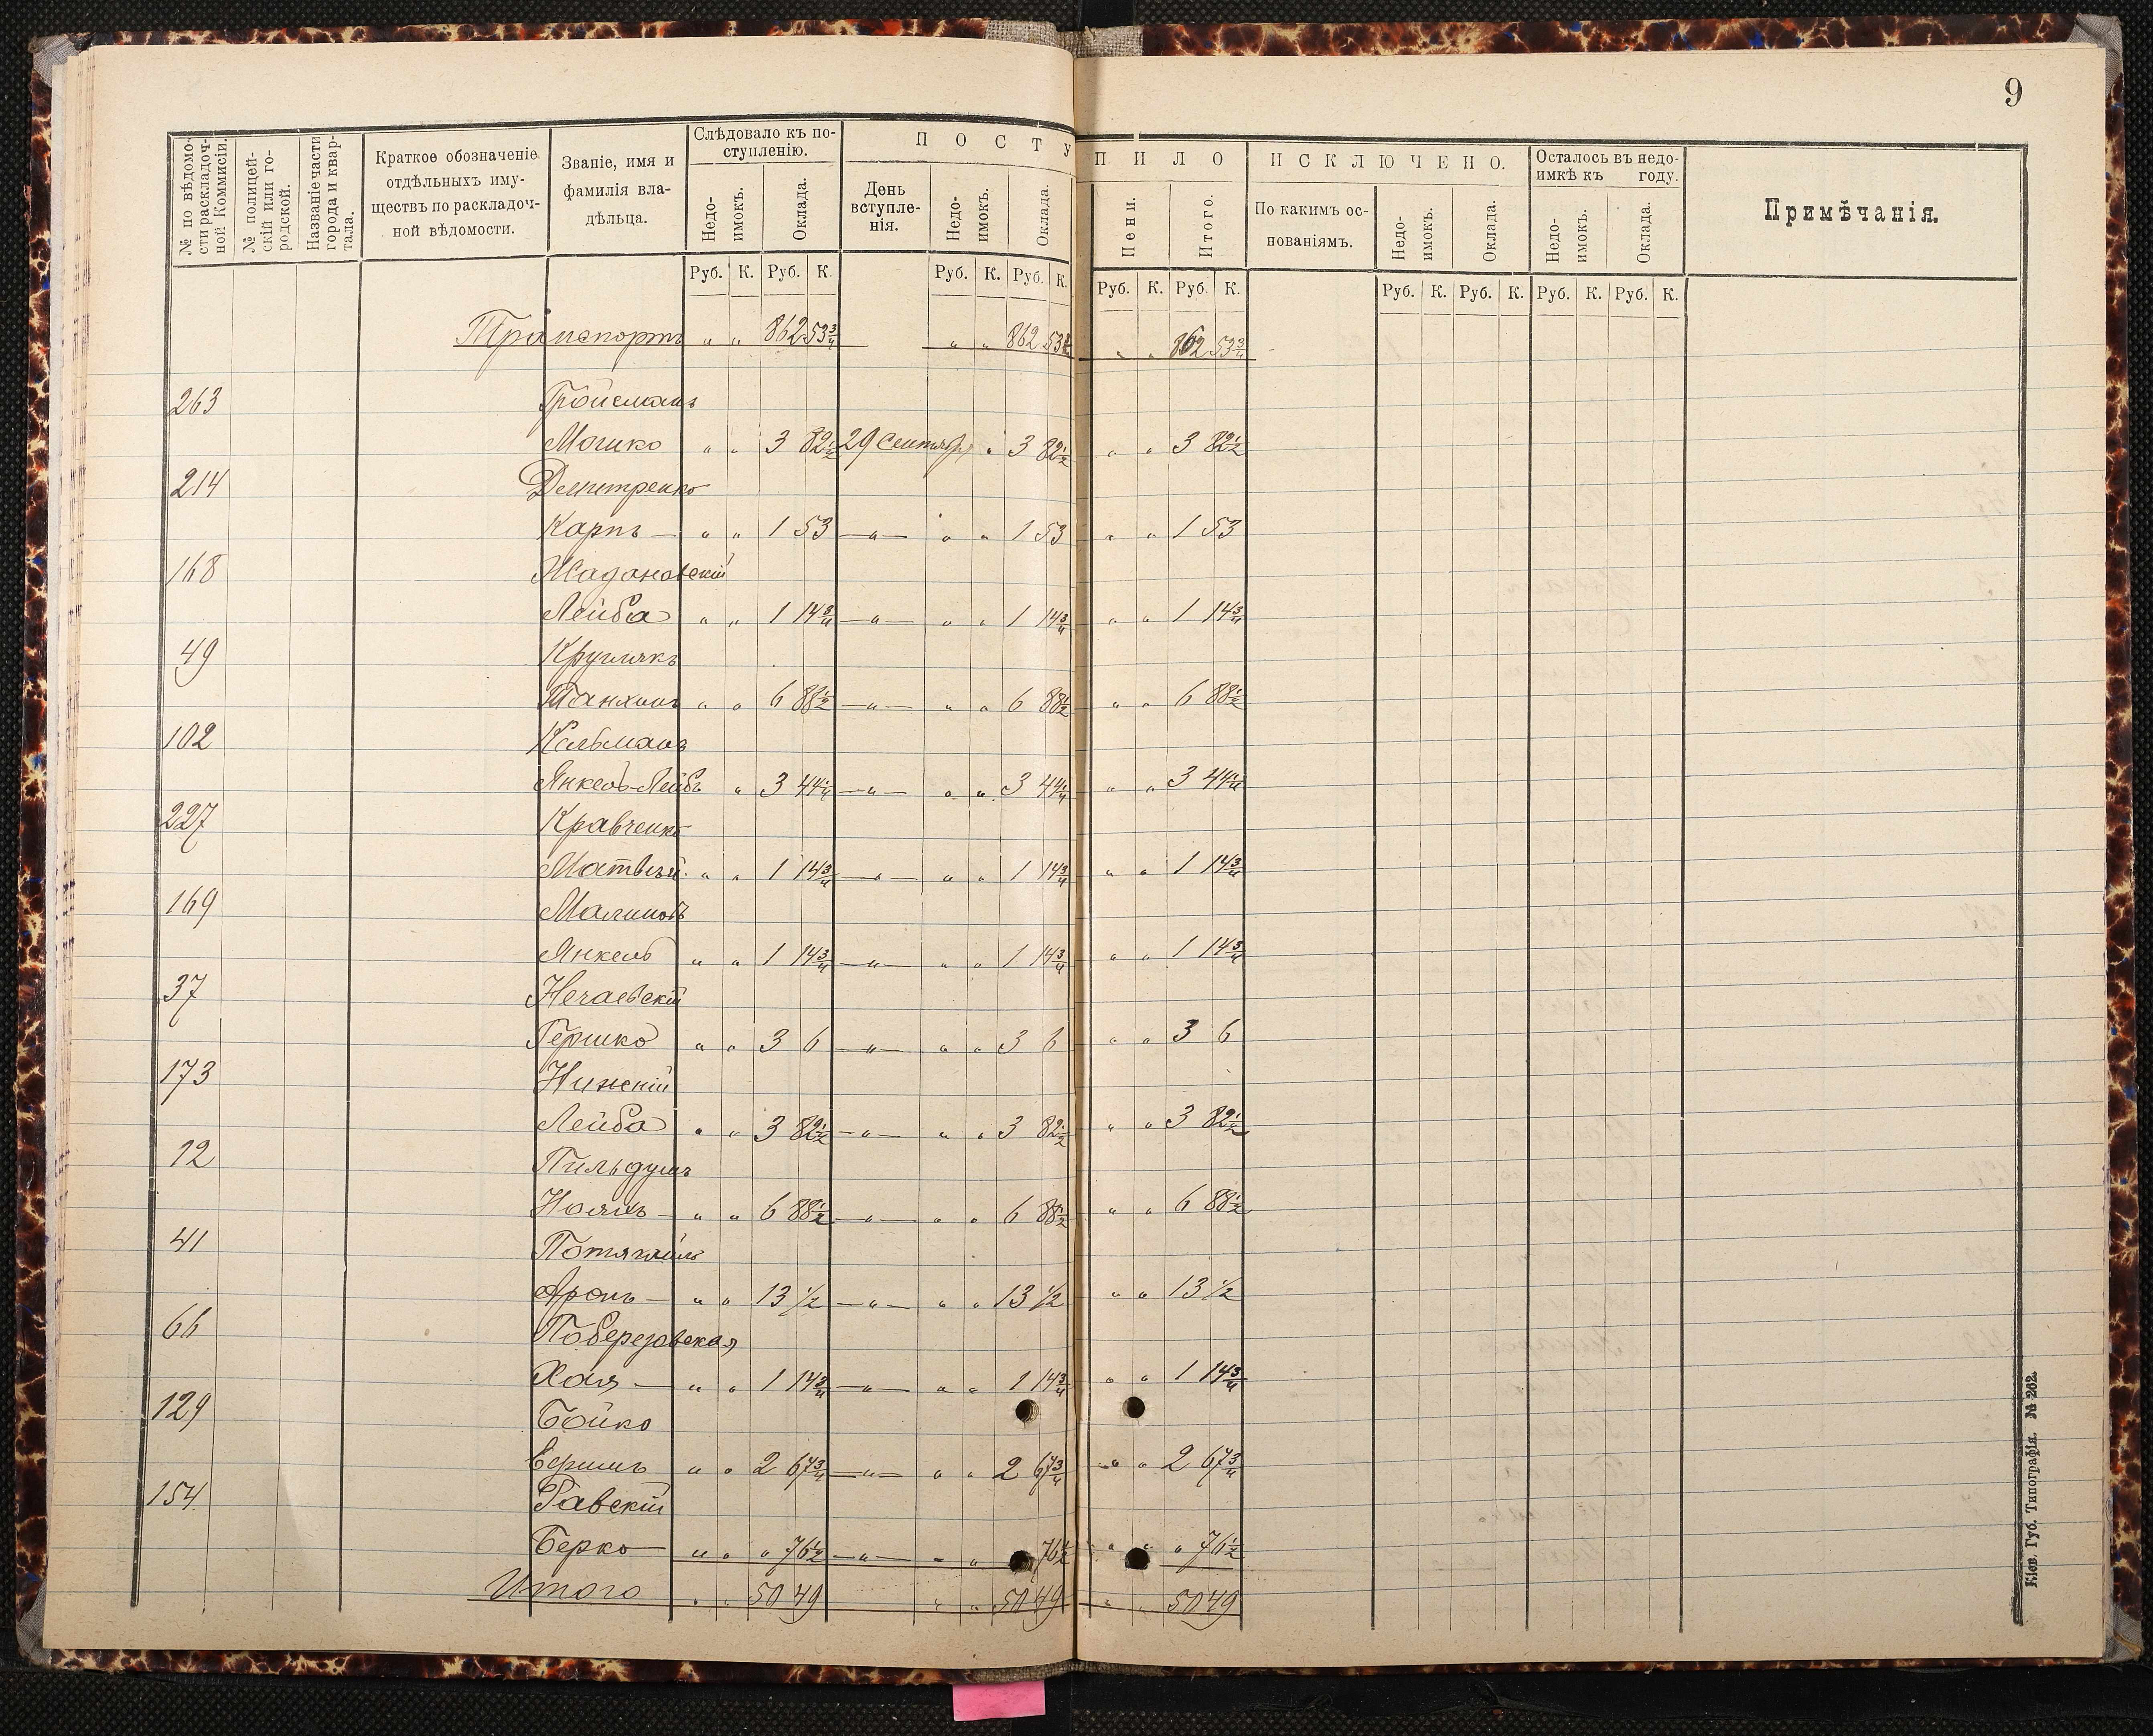 9
№ по вѣдомости раскладочной Коммисіи.
№ полицейскій или городской.
Названіе части города и квартала.
Краткое обозначеніе отдѣльныхъ имуществъ по раскладочной вѣдомости.
Званіе, имя и фамилія владѣльца.
Слѣдовало къ поступленію.
Недоимокъ. Оклада.
ПОСТУПИЛО
День вступленія. Недоимокъ. Оклада. Пени. Итого.
ИСКЛЮЧЕНО.
По какимъ основаніямъ. Недоимокъ. Оклада.
Осталось въ недоимкѣ къ году.
Недоимокъ. Оклада.
Примѣчанія.
Руб. К. Руб. К. Руб. К. Руб. К. Руб. К. Руб. К. Руб. К. Руб. К. Руб. К. Руб. К.
Транспортъ " " 862 53¾ " " 862 53¾ " " 862 53¾
263 Гройсманъ
Мошко " " 3 82½ 29 Сентября " 3 82½ " " 3 82½
214 Деметренко
Карпъ — " " 1 53 —"— " " 1 53 " " 1 53
168 Жадановскій
Лейба " " 1 14¾ —"— " " 1 14¾ " " 1 14¾
49 Круглякъ
Танхинъ " " 6 88½ —"— " " 6 88½ " " 6 88½
102 Кельманъ
Янкель-Лейбъ " 3 44¼ —"— " " 3 44¼ " " 3 44¼
227 Кравченко
Матвѣй " " 1 14¾ —"— " " 1 14¾ " " 1 14¾
169 Малиновъ
Янкель " " 1 14¾ —"— " " 1 14¾ " " 1 14¾
37 Нечаевскій
Гершко " " 3 6 —"— " " 3 6 " " 3 6
173 Нижскій
Лейба " " 3 82½ —"— " " 3 82½ " " 3 82½
12
" " 6 88½ —"— " " 6 88½ " " 6 88½
41
Аронъ — " " 13 ½ —"— " " 13 ½ " " 13 ½
66 Поберезовская
Хая — " " 1 14¾ —"— " " 1 14¾ " " 1 14¾
129 Бойко
" " 2 67¾ —"— " " 2 67¾ " " 2 67¾
154 Равскій
Берко — " " " 76½ —"— " " 76½ " " " 76½
Итого " " 50 49 " " 50 49 " " 50 49
Кіев. Губ. Типографія. № 262.